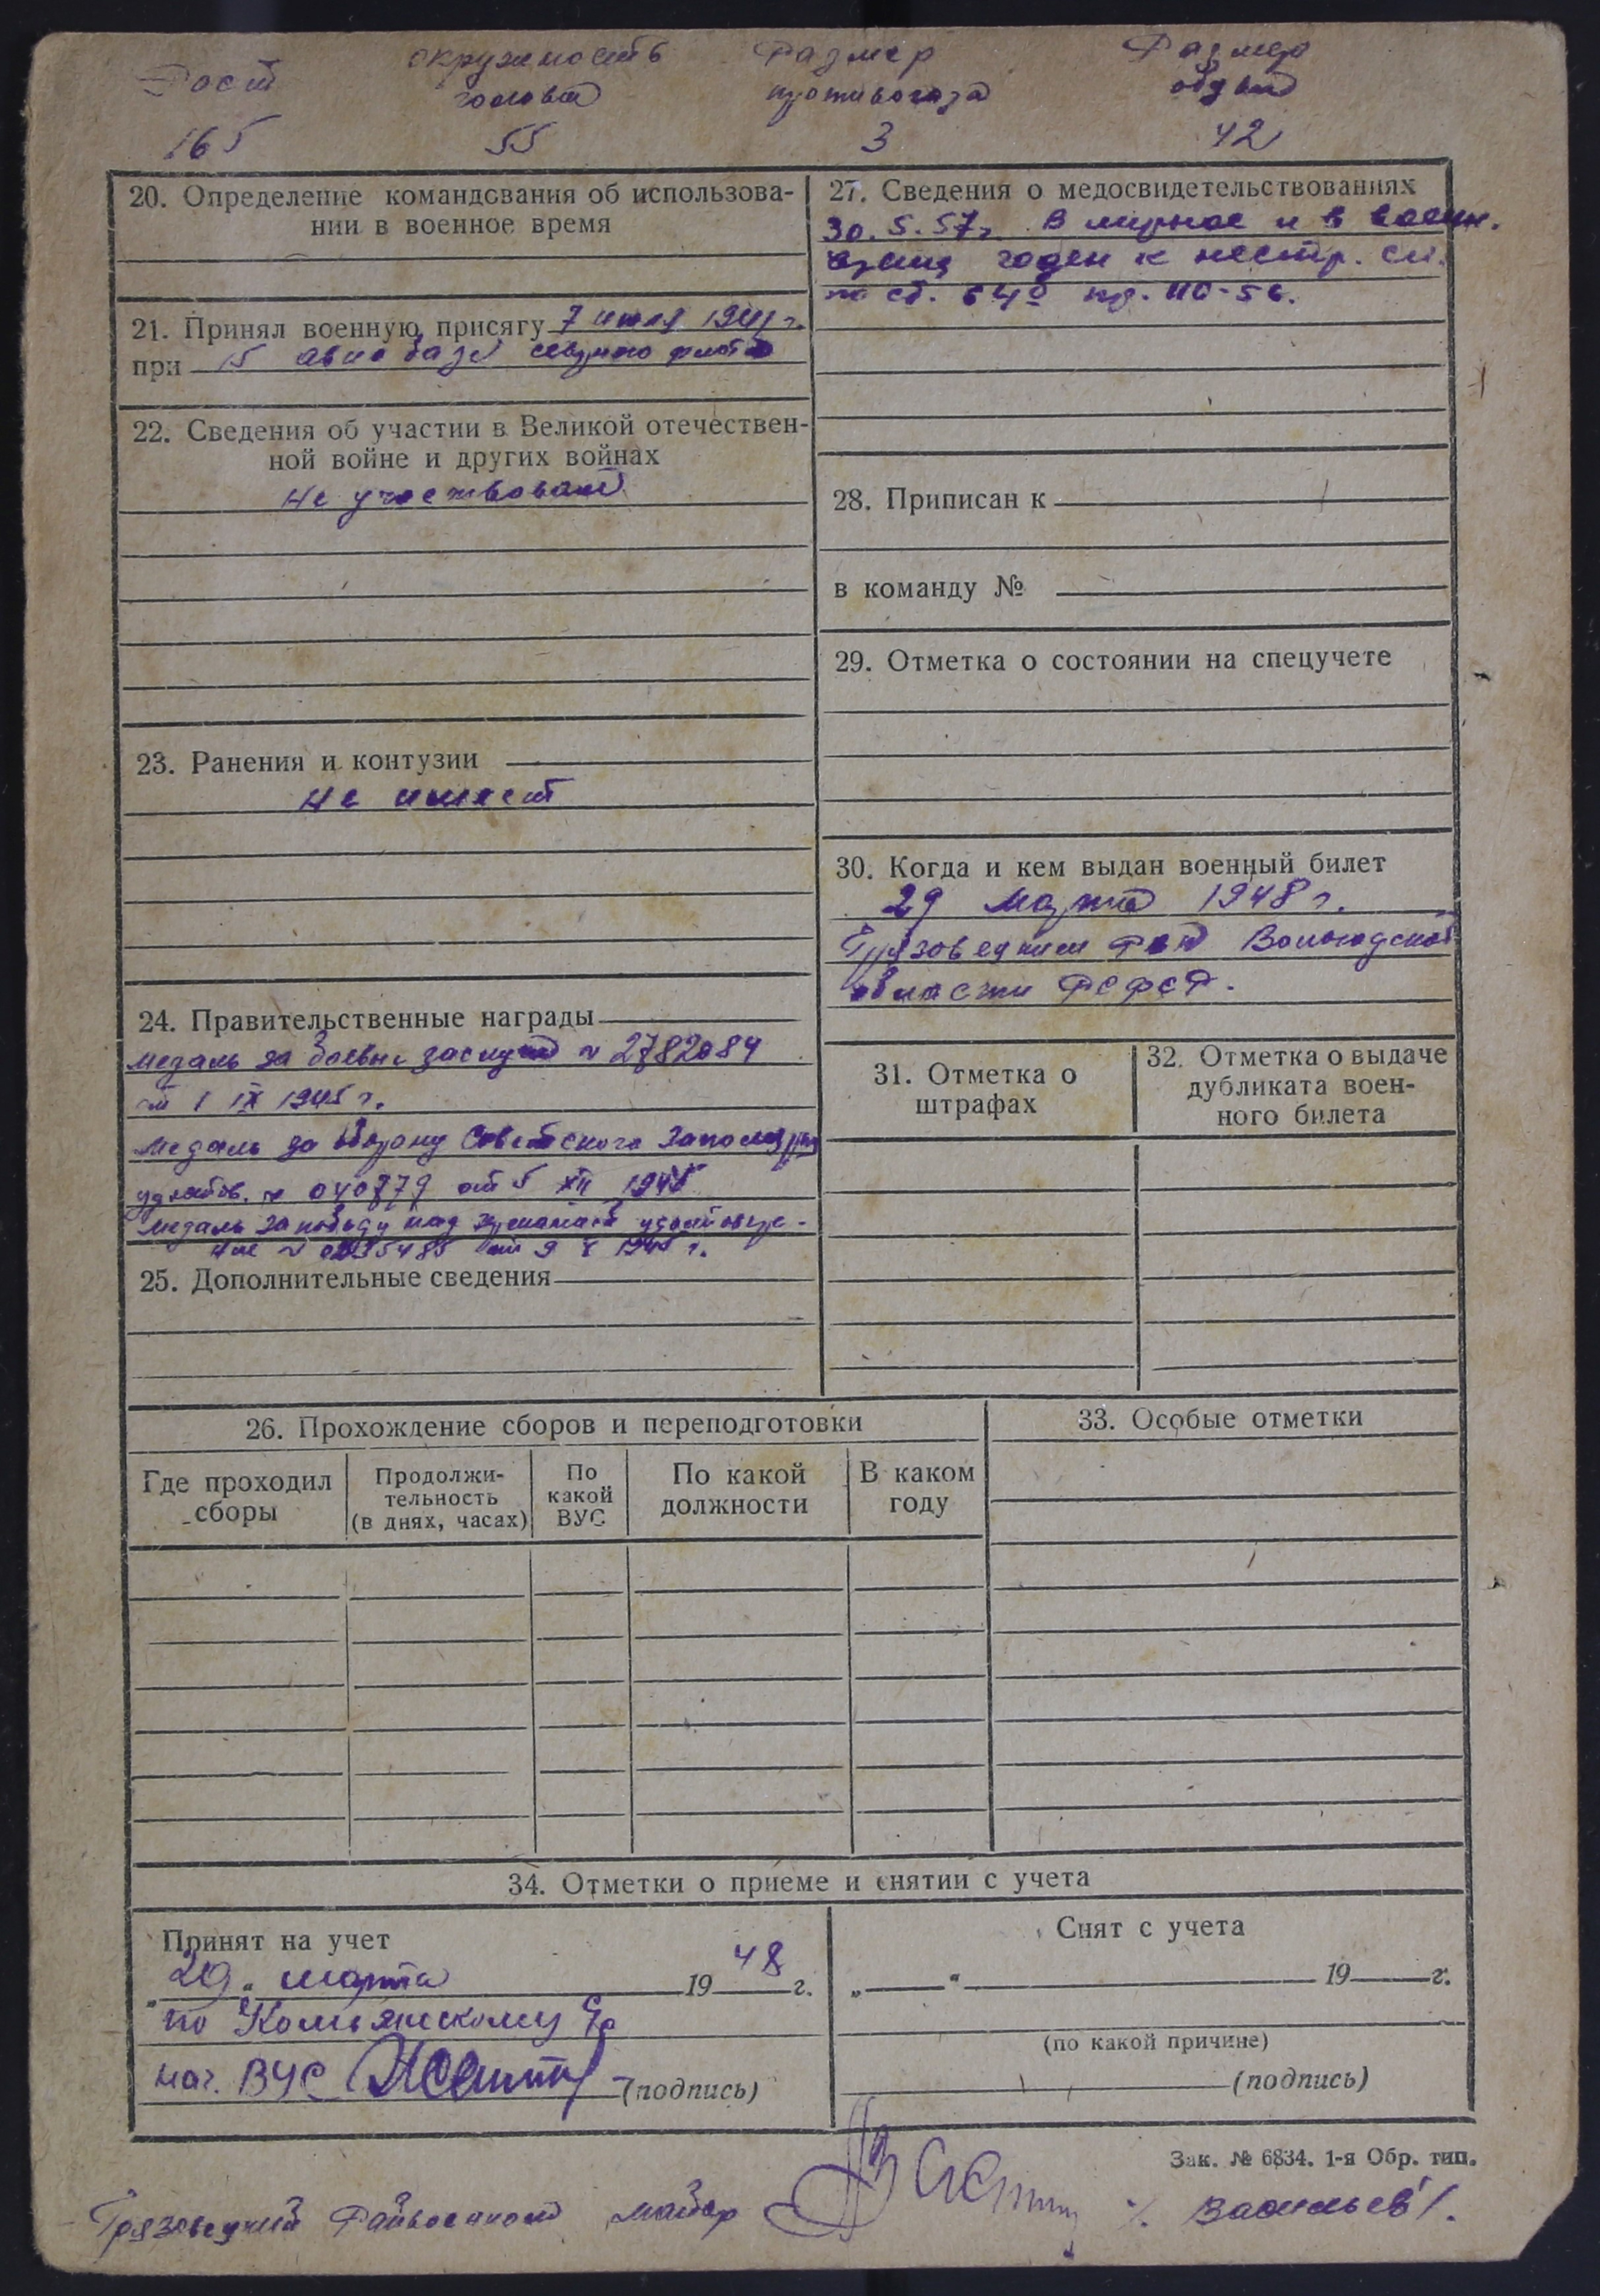 Рост
окружность
головы
Размер
противогаза
Размер
обуви
165
55
3
42
20. Определение командования об использова-
нии в военное время
21. Принял военную присягу 7 июля 1941 г.
при 15 авиабазе северного флота
22. Сведения об участии в Великой отечествен-
ной войне и других войнах
не участвовал
23. Ранения и контузии
не имеет
24. Правительственные награды
медаль за боевые заслуги № 2782084
от 1 IX 1945 г.
медаль за оборону Советского Заполярья
удостов. № 040879 от 5 XII 1945
медаль за победу над Германией удостовере-
ние № от 9 V 1945 г.
25. Дополнительные сведения
26. Прохождение сборов и переподготовки
Где проходил
сборы
Продолжи-
тельность
(в днях, часах)
По
какой
ВУС
По какой
должности
В каком
году
27. Сведения о медосвидетельствованиях
30.5.57г. В мирное и в военн.
время годен к нестр. сл.
по ст. 64б пр. МО-56.
28. Приписан к
в команду №
29. Отметка о состоянии на спецучете
30. Когда и кем выдан военный билет
29 марта 1948 г.
Грязовецким РВК Вологодской
области РСФСР.
31. Отметка о
штрафах
32. Отметка о выдаче
дубликата воен-
ного билета
33. Особые отметки
34. Отметки о приеме и снятии с учета
Принят на учет
„29„ марта 1948 г.
по Комьянскому
нач. ВУС (подпись)
Снят с учета
„ “ 19 г.
(по какой причине)
(подпись)
Зак. № 6834. 1-я Обр. тип.
Грязовецкий Райвоенком майор /. Васильев /.